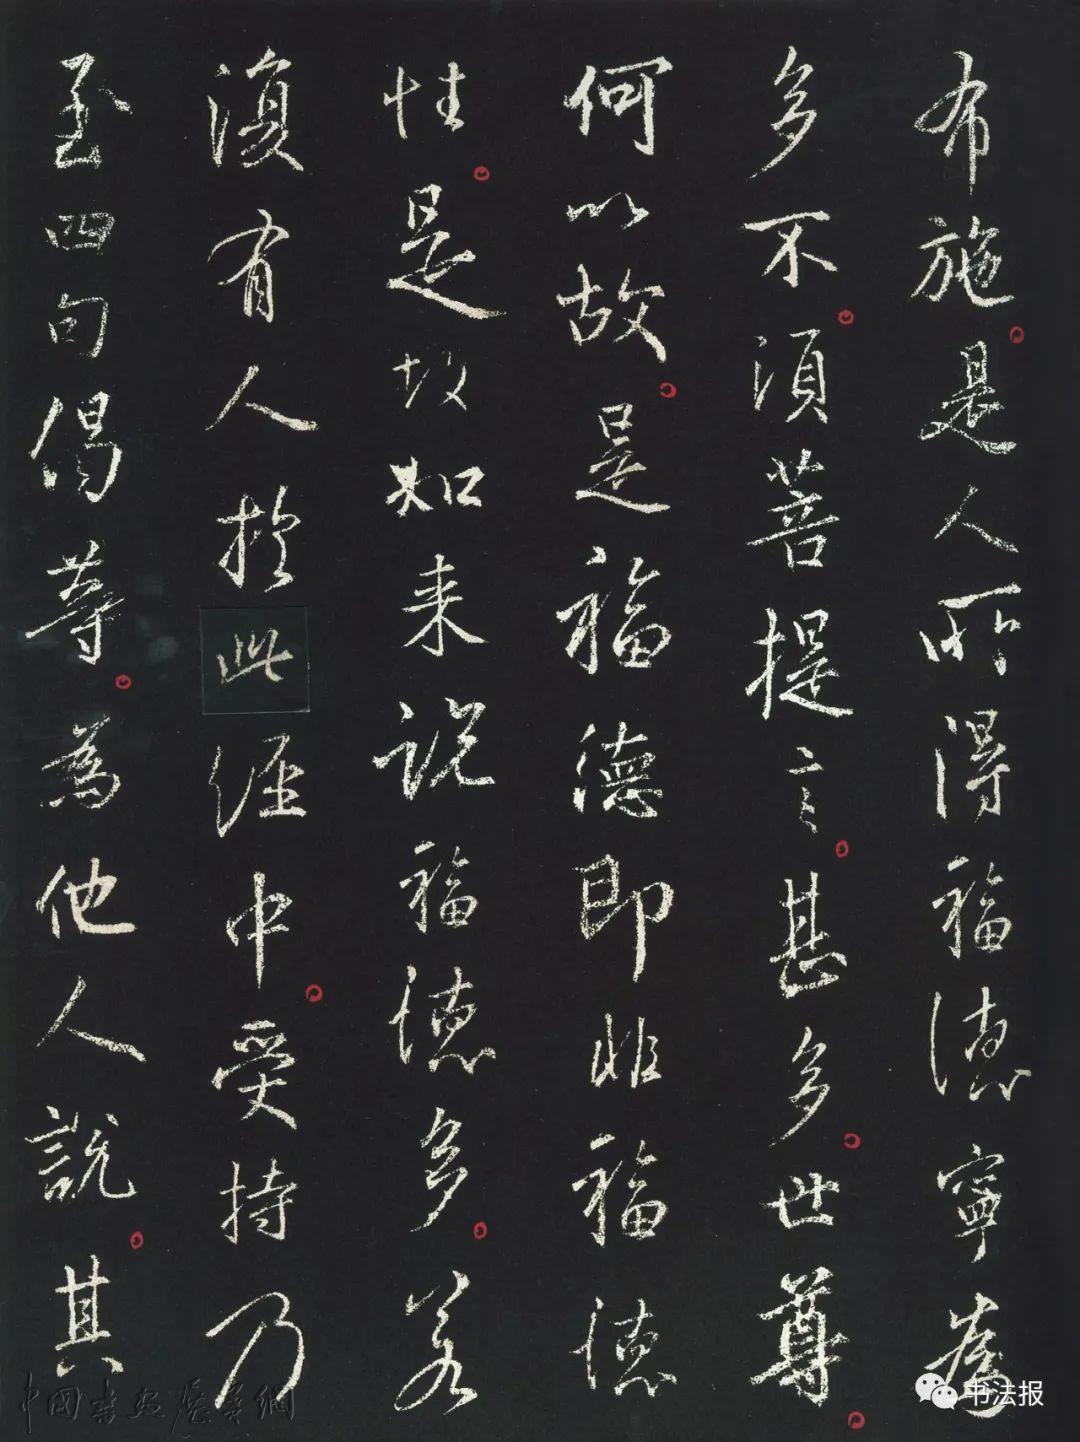 布施是人所得福德寧為
多不須菩提言甚多世尊
何以故是福德即非福德
性是故如来說福德多若
復有人於此經中受持乃
至四句偈等為他人說其
书法报
中國書畫展賽網